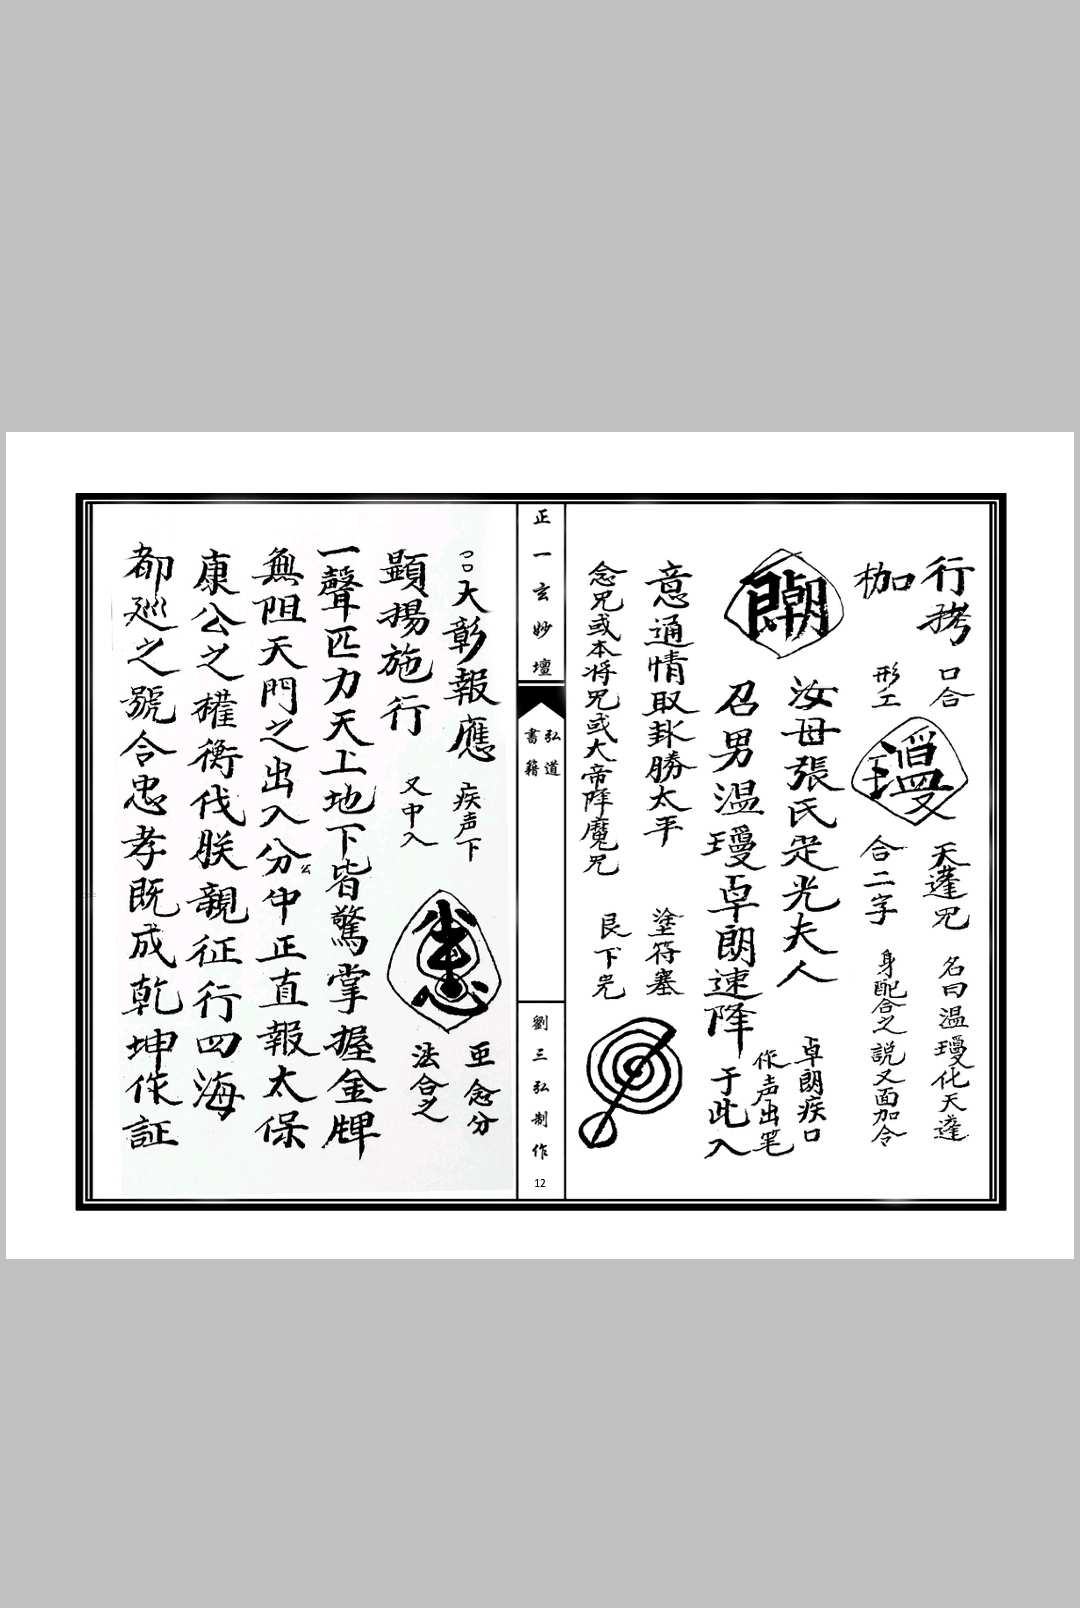 行拷
口合
枷
形工
天蓬咒
名曰溫瓊化天蓬
合二字
身配合之說又面加令
汝母張氏是光夫人
卓朗疾口
作声出笔
召男溫瓊卓朗速降
于此入
意通情取卦勝太平
塗符塞
念咒或本将咒或大帝降魔咒
艮下炁
正一玄妙壇
弘道
書籍
劉三弘制作
12
大彰報應
疾声下
亜念分
顕揚施行
又中入
法合之
一聲匹力天上地下皆驚掌握金牌
無阻天門之出入分中正直報太保
康公之權衡伐朕親征行四海
都巡之號合忠孝既成乾坤作証